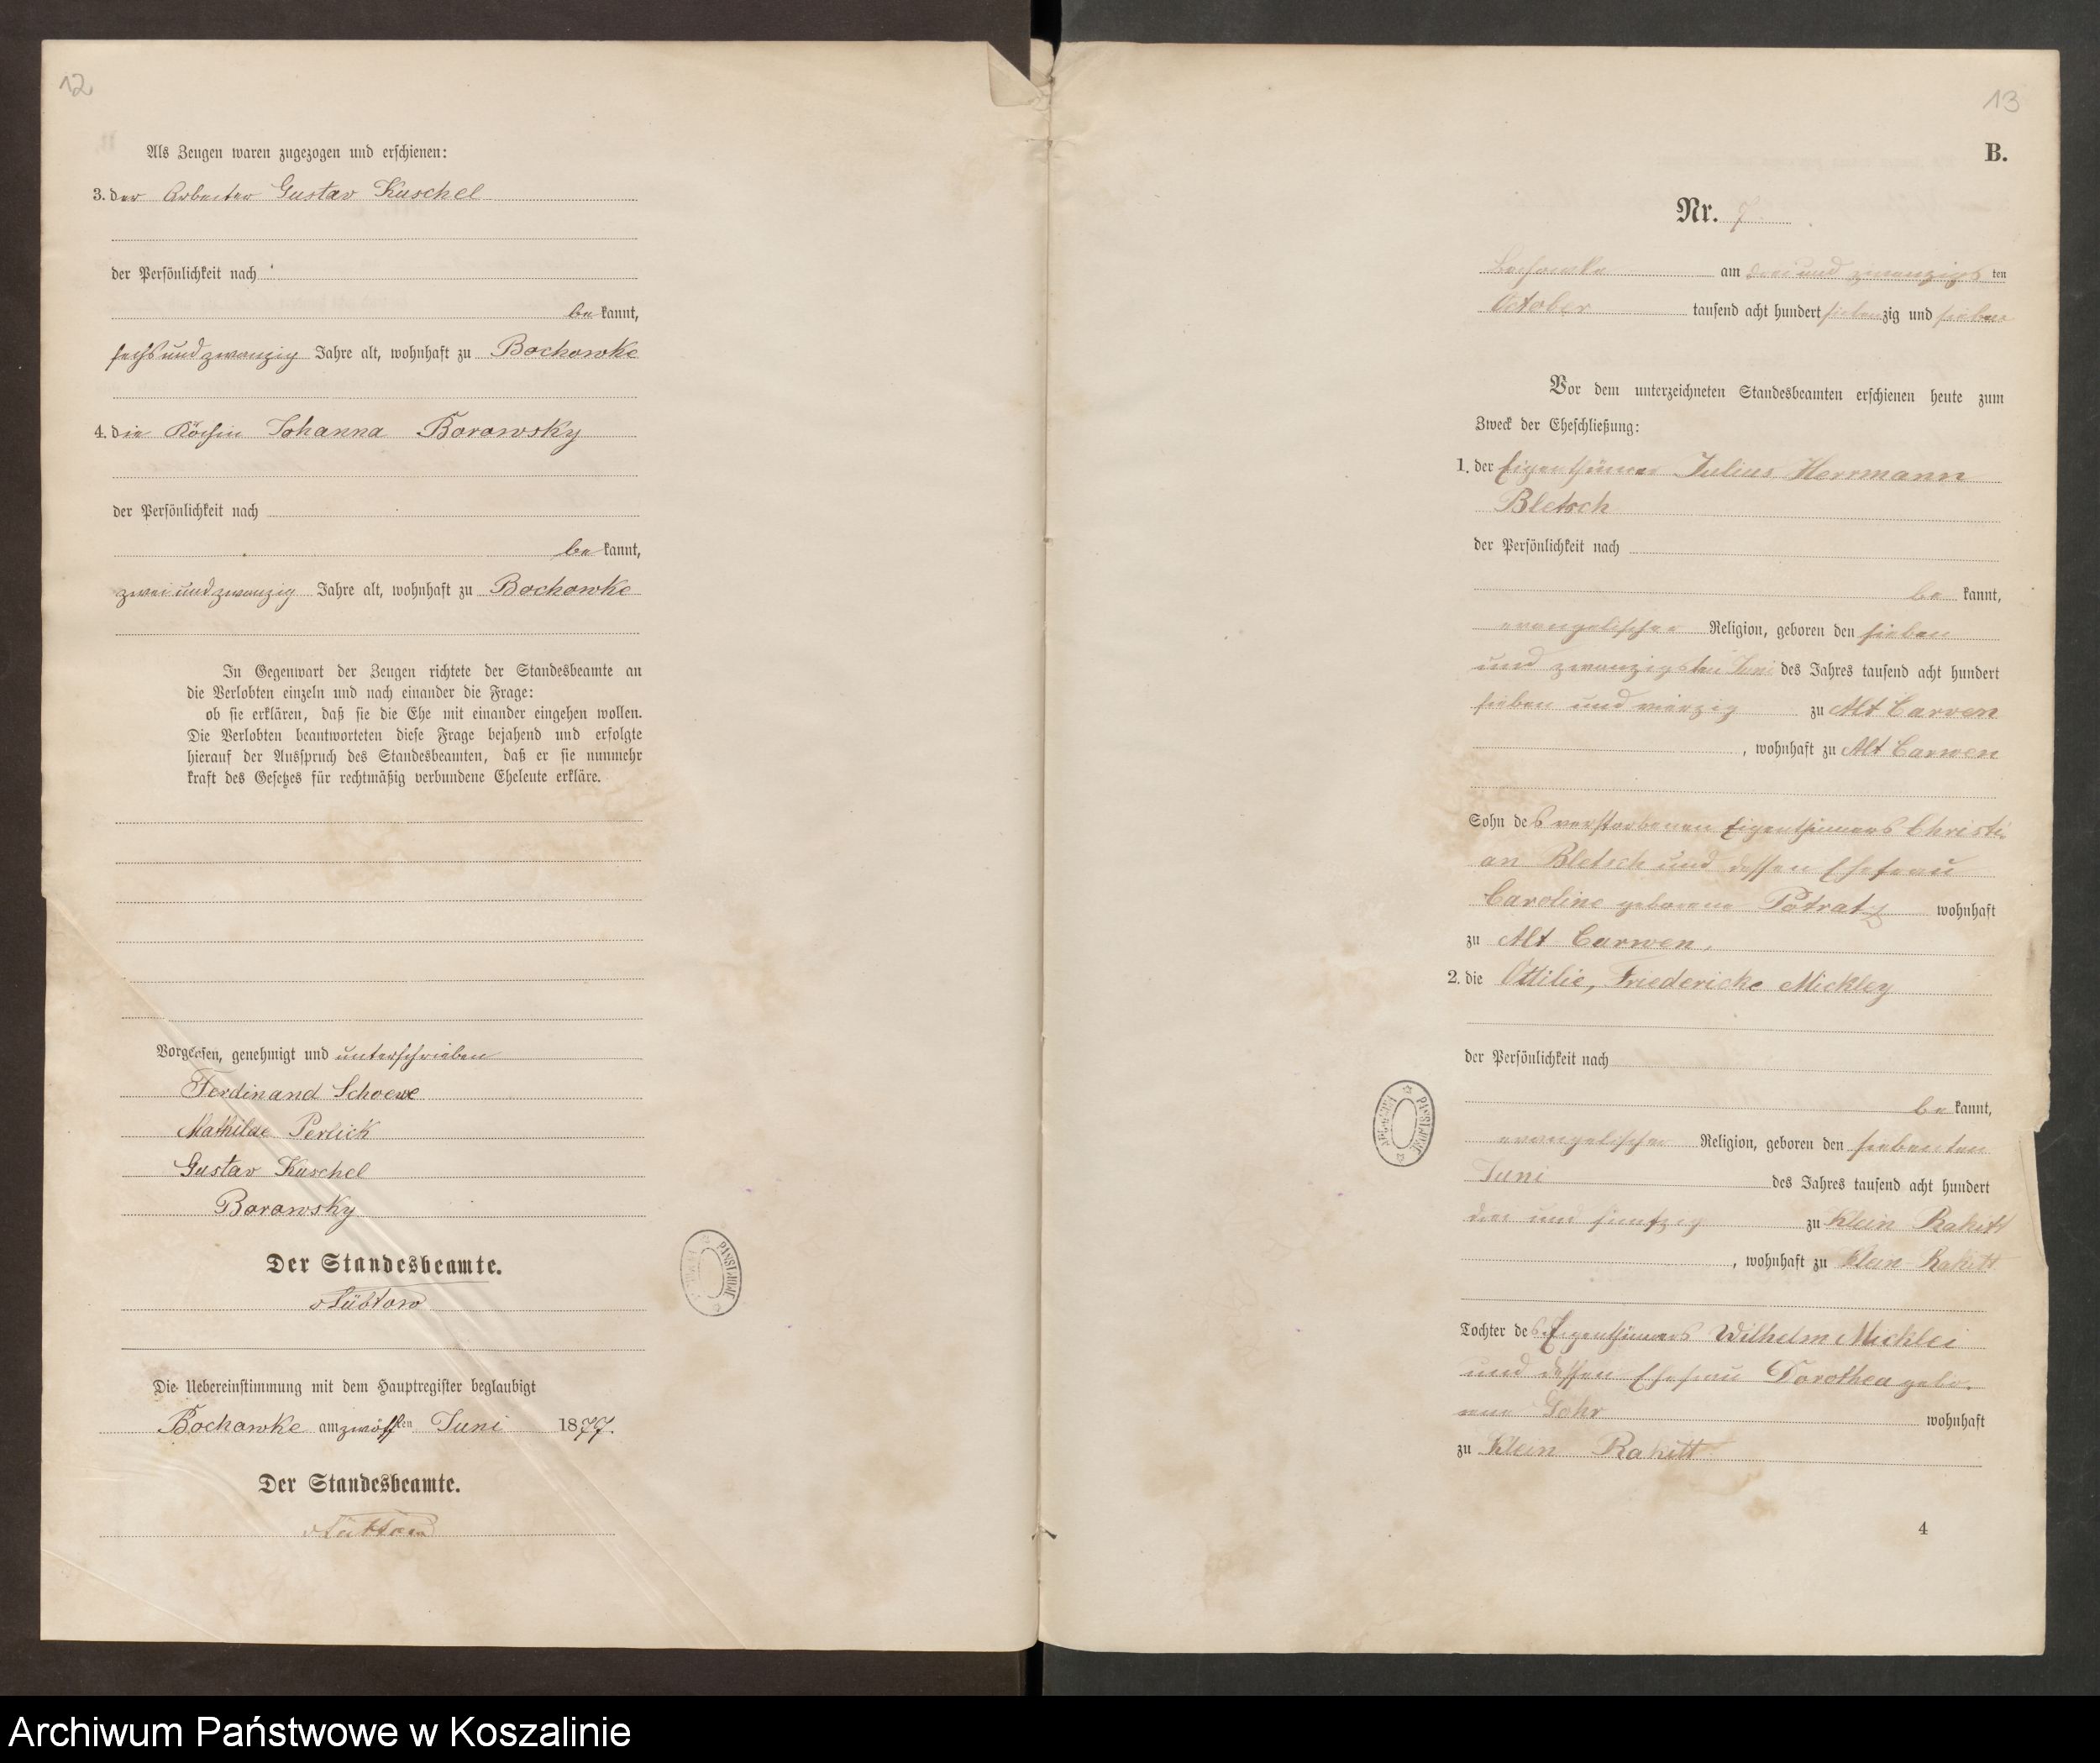 12
Als Zeugen waren zugezogen und erschienen:
3. der Arbeiter Gustav Kuschel
der Persönlichkeit nach
be kannt,
sechs und zwanzig Jahre alt, wohnhaft zu Bochowke
4. die Köchin Johanna Borowsky
der Persönlichkeit nach
be kannt,
zwei und zwanzig Jahre alt, wohnhaft zu Bochowke
In Gegenwart der Zeugen richtete der Standesbeamte an
die Verlobten einzeln und nach einander die Frage:
ob sie erklären, daß sie die Ehe mit einander eingehen wollen.
Die Verlobten beantworteten diese Frage bejahend und erfolgte
hierauf der Ausspruch des Standesbeamten, daß er sie nunmehr
kraft des Gesetzes für rechtmäßig verbundene Eheleute erkläre.
Vorgelesen, genehmigt und unterschrieben
Ferdinand Schoewe
Mathilde Perlick
Gustav Kuschel
Borowsky
Der Standesbeamte.
Die Uebereinstimmung mit dem Hauptregister beglaubigt
Bochowke am zwölften Juni 1877.
Der Standesbeamte.
13
B.
Nr. 7
Bochowke am drei und zwanzigsten
October tausend acht hundert siebenzig und sieben
Vor dem unterzeichneten Standesbeamten erschienen heute zum
Zweck der Eheschließung:
1. der Eigenthümer Julius Herrmann
Bletsch
der Persönlichkeit nach
be kannt,
evangelischer Religion, geboren den sieben
und zwanzigsten Juni des Jahres tausend acht hundert
sieben und vierzig zu Alt Carwen
, wohnhaft zu Alt Carwen
Sohn des verstorbenen Eigenthümers Christi
an Bletsch und dessen Ehefrau
Caroline geborene Potratz wohnhaft
zu Alt Carwen,
2. die Ottilie, Friedericke Mickley
der Persönlichkeit nach
be kannt,
evangelischer Religion, geboren den siebenten
Juni des Jahres tausend acht hundert
drei und fünfzig zu Klein Rakitt
, wohnhaft zu Klein Rakitt
Tochter des Eigenthümers Wilhelm Micklei
und dessen Ehefrau Dorothea gebo-
rene Gohr wohnhaft
zu Klein Rakitt
4
Archiwum Państwowe w Koszalinie